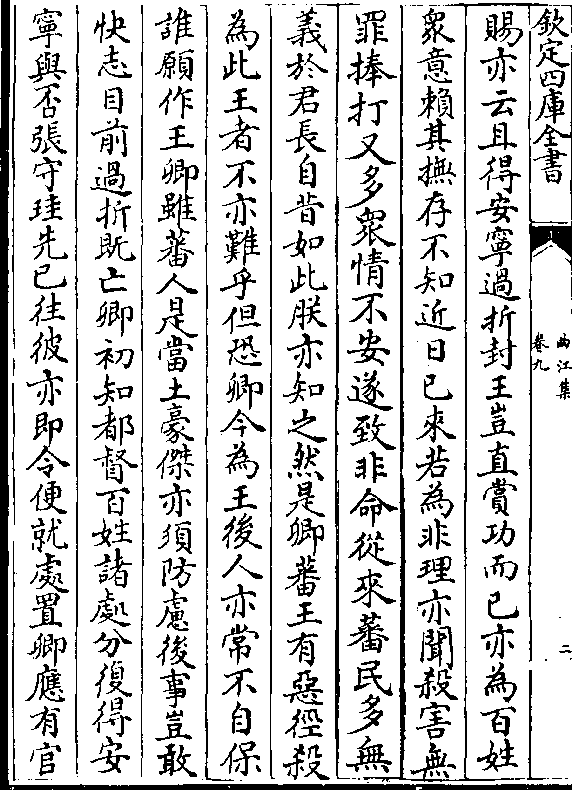 欽定四庫全書
曲江集
卷九
二
賜亦云且得安寧過折封王豈直賞功而已亦為百姓
衆意賴其撫存不知近日已來若為非理亦聞殺害無
罪捧打又多衆情不安遂致非命從來蕃民多無
義於君長自昔如此朕亦知之然是卿蕃王有惡徑殺
為此王者不亦難乎但恐卿今為王後人亦常不自保
誰願作王卿雖蕃人是當土豪傑亦須防慮後事豈敢
快志目前過折既亡卿初知都督百姓諸處分復得安
寧與否張守珪先已往彼亦即令便就處置卿應有官